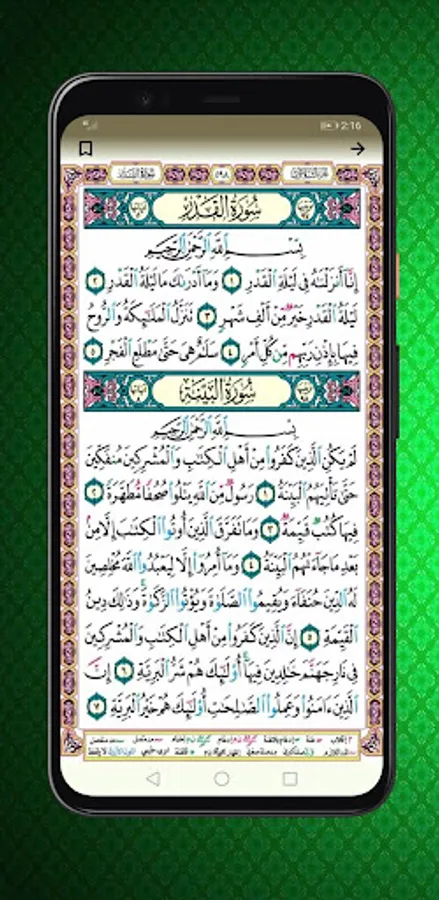 2:16
سورة القدر
٥٩٨
الجزء الثلاثون
سُورَةُ القَدْرِ
بِسْمِ اللَّهِ الرَّحْمَٰنِ الرَّحِيمِ
إِنَّا أَنزَلْنَٰهُ فِي لَيْلَةِ الْقَدْرِ ١ وَمَا أَدْرَىٰكَ مَا لَيْلَةُ الْقَدْرِ ٢
لَيْلَةُ الْقَدْرِ خَيْرٌ مِّنْ أَلْفِ شَهْرٍ ٣ تَنَزَّلُ الْمَلَٰٓئِكَةُ وَالرُّوحُ
فِيهَا بِإِذْنِ رَبِّهِم مِّن كُلِّ أَمْرٍ ٤ سَلَٰمٌ هِيَ حَتَّىٰ مَطْلَعِ الْفَجْرِ ٥
سُورَةُ البَيِّنَةِ
بِسْمِ اللَّهِ الرَّحْمَٰنِ الرَّحِيمِ
لَمْ يَكُنِ الَّذِينَ كَفَرُوا مِنْ أَهْلِ الْكِتَٰبِ وَالْمُشْرِكِينَ مُنفَكِّينَ
حَتَّىٰ تَأْتِيَهُمُ الْبَيِّنَةُ ١ رَسُولٌ مِّنَ اللَّهِ يَتْلُوا صُحُفًا مُّطَهَّرَةً ٢
فِيهَا كُتُبٌ قَيِّمَةٌ ٣ وَمَا تَفَرَّقَ الَّذِينَ أُوتُوا الْكِتَٰبَ إِلَّا مِن
بَعْدِ مَا جَآءَتْهُمُ الْبَيِّنَةُ ٤ وَمَا أُمِرُوا إِلَّا لِيَعْبُدُوا اللَّهَ مُخْلِصِينَ
لَهُ الدِّينَ حُنَفَآءَ وَيُقِيمُوا الصَّلَوٰةَ وَيُؤْتُوا الزَّكَوٰةَ وَذَٰلِكَ دِينُ
الْقَيِّمَةِ ٥ إِنَّ الَّذِينَ كَفَرُوا مِنْ أَهْلِ الْكِتَٰبِ وَالْمُشْرِكِينَ
فِي نَارِ جَهَنَّمَ خَٰلِدِينَ فِيهَا أُولَٰٓئِكَ هُمْ شَرُّ الْبَرِيَّةِ ٦ إِنَّ
الَّذِينَ ءَامَنُوا وَعَمِلُوا الصَّٰلِحَٰتِ أُولَٰٓئِكَ هُمْ خَيْرُ الْبَرِيَّةِ ٧